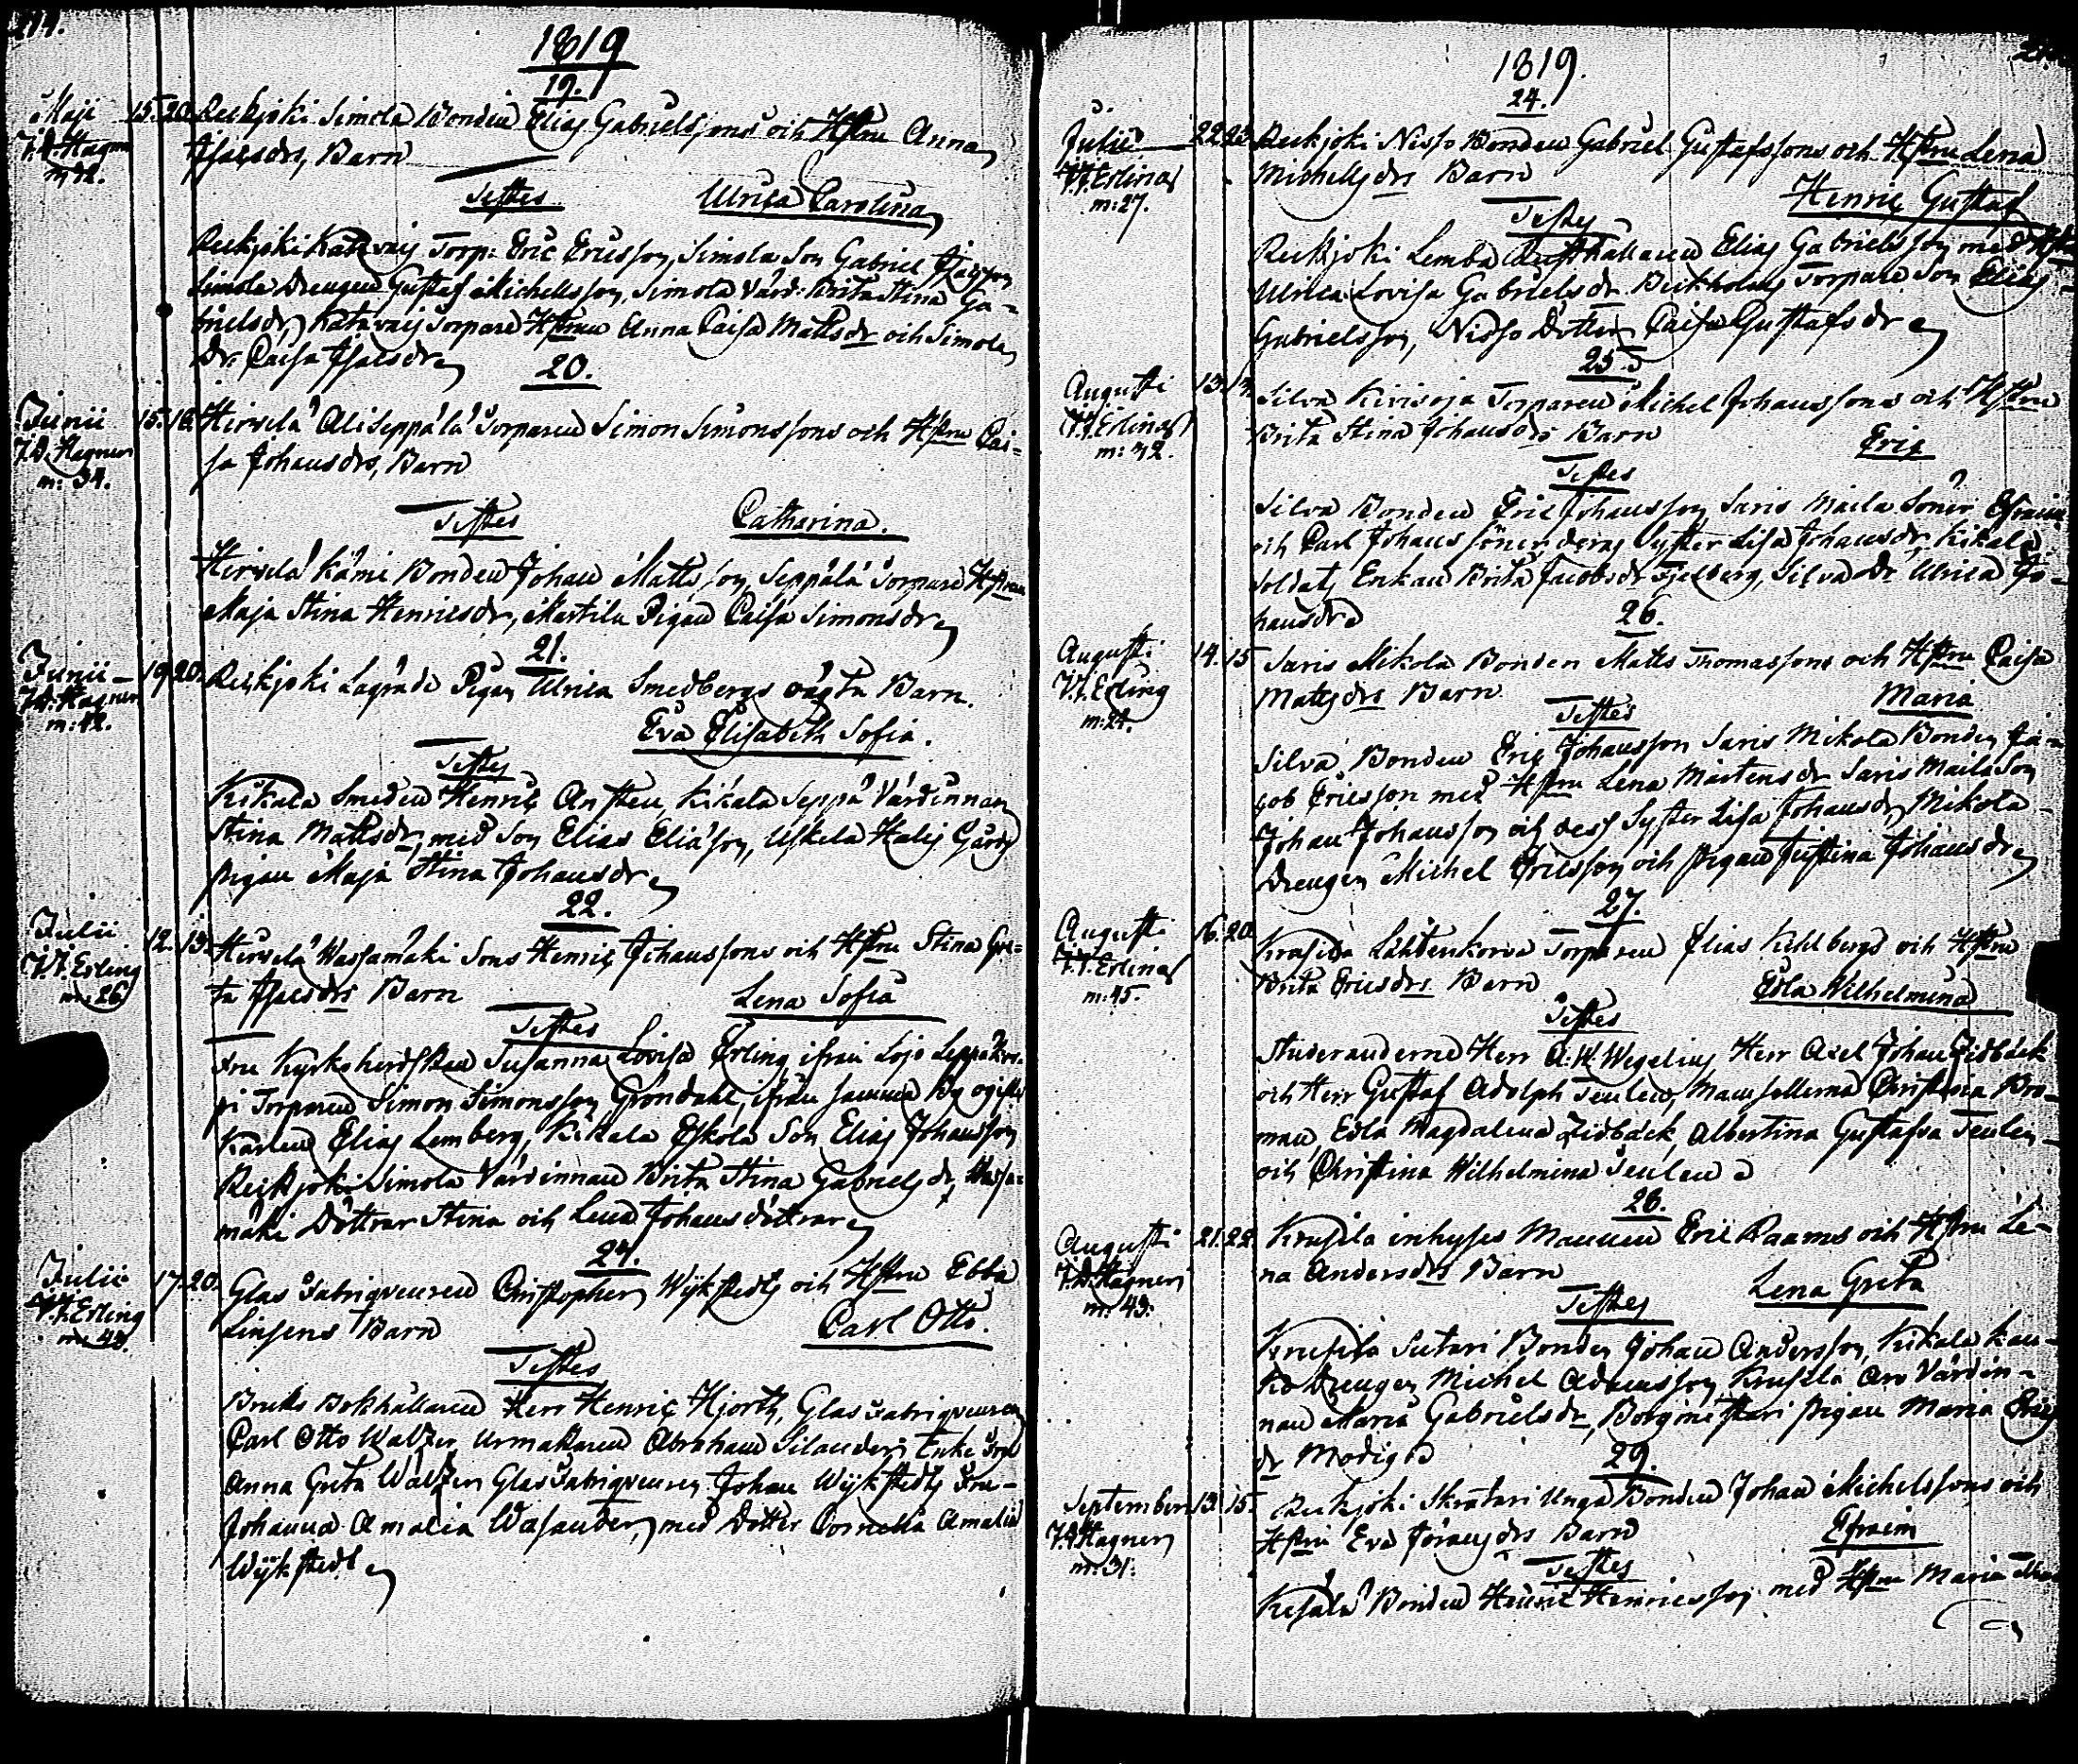 1819
19.
Maji 15. 20. Reckjoki Simola Bonden Elias Gabrielssons och Hstru Anna
J.D. Hagner Isacsdrs, Barn
m: 42.
Testes Ulrica Carolina
Reckjoki Katavais Torp: Eric Ericsson, Simola Son Gabriel Isacsson
Simola Drengen Gustaf Michellsson, Simola Värd: Brita Stina Ga-
brielsdr, Katavais Torpare Hstrun Anna Caisa Mattsdr och Simola
Dr. Caisa Isacsdr
20.
Junii 15. 16. Hirvelä Aliseppälä Torparen Simon Simonssons och Hstru Cai-
J.D. Hagner sa Johansdrs, Barn
m: 34.
Testes Catharina.
Hirvelä Kämi Bonden Johan Mattsson, Seppälä Torpare Hstrun
Maja Stina Henricsdr, Marttila Pigan Caisa Simonsdr
21.
Junii 19. 20. Reckjoki Pigan Ulrica Smedbergs oägta Barn.
J.D. Hagner Eva Elisabeth Sofia.
m: 42.
Testes
Kikala Smeden Henric Ansten, Kikala Seppä Värdinnan
Stina Mattsdr, med Son Elias Eliasson, Uskela Gårds
pigan Maja Stina Johansdr
22.
Julii 12. 13. Hirvelä Wassamäki Sons Henric Johanssons och Hstru Stina Gre-
J.J. Erling ta Isacsdrs Barn Lena Sofia
m: 26
Testes
Fru Kyrkoherdskan Susanna Lovisa Erling ifrån Lojo
pi Torparen Simon Simonsson Gröndahl, ifrån samma By ogifte
Karlen Elias Lemberg, Kikala Eskola Son Elias Johansson
Reckjoki Simola Värdinnan Brita Stina Gabrielsdr, Wassa-
mäki Döttrar Stina och Lena Johansdöttrar
24.
Julii 17. 20. Glas Fabriqueuren Christopher Wijkstedts och Hstru Ebba
J.J. Erling Linsens Barn Carl Otto.
m: 40.
Testes
Bruks Bokhållaren Herr Henric Hjorth, Glas Fabriqueuren
Carl Otto Walzer, Urmakaren Abraham Silanders Enke Fru
Anna Greta Walzer, Glas Fabriqueuren Johan Wijkstedts Fru
Johanna Amalia Wasander, med Dotter Cornelia Amalia
Wijkstedt
1819.
24.
Julii 22. 23. Reckjoki Nisso Bonden Gabriel Gustafssons och Hstru Lena
J.J. Erling Michellsdrs Barn Henric Gustaf
m: 27.
Testes
Reckjoki Lemba Rusthållaren Elias Gabrielsson med Hstru
Ulrica Lovisa Gabrielsdr Torpare Son Elias
Gabrielsson, Nisso Dotter Caisa Gustafsdr
25.
Augusti 13. Silva Kirisoja Torparen Michel Johanssons och Hstru
J.J. Erling Brita Stina Johansdrs Barn Eric
m: 42.
Testes
Silva Bonden Eric Johansson, Saris Maila Söner Efraim
och Carl Johans söner, deras Syster Lisa Johansdr, Kikala
Soldats Enkan Brita Jacobsdr Fjelberg, Silva Dr Ulrica Jo-
hansdr
26.
Augusti 14. 15 Saris Mikola Bonden Matts Thomassons och Hstru Caisa
J.J. Erling Mattsdrs Barn Maria
m: 24.
Testes
Silva Bonden Eric Johansson Saris Mikola Bonden Ja-
cob Ericsson med Hstru Lena Mårtensdr Saris Maila Son
Johan Johansson och dess Syster Lisa Johansdr, Mikola
Drengen Michel Ericsson och pigan Justina Johansdr
27.
Augusti 16. 20. Krusila Lähteenkorva Torparen Elias Kihlbergs och Hstru
J.J. Erling Brita Ericsdrs Barn Edla Wilhelmina
m: 45.
Testes
Studeranderne Herr A. W. Wegelius, Herr Axel Johan Zidbäck
och Herr Gustaf Adolph Teulen, Mamsellerna Christina Bro-
man, Edla Magdalena Zidbäck, Albertina Gustafva Teulen
och Christina Wilhelmina Teulen
28.
Augusti 21. 22. Krusila inhyses Mannen Eric Raamus och Hstru Le-
J.D. Hagner na Andersdrs Barn Lena Greta
m: 43.
Testes
Krusila Sutari Bonden Johan Andersson, Kikala Kau-
ko Drengen Michel Adamsson, Krusila Aro Värdin-
nan Maria Gabrielsdr, pigan Maria Erics
dr Modig
29.
September 13. 15. Reckjoki Skrätari Unga Bonden Johan Michelssons och
J.D. Hagner Hstru Eva Jöransdrs Barn Efraim
m: 31.
Testes
Kesälä Bonden Henric Henricsson med Hstru Maria